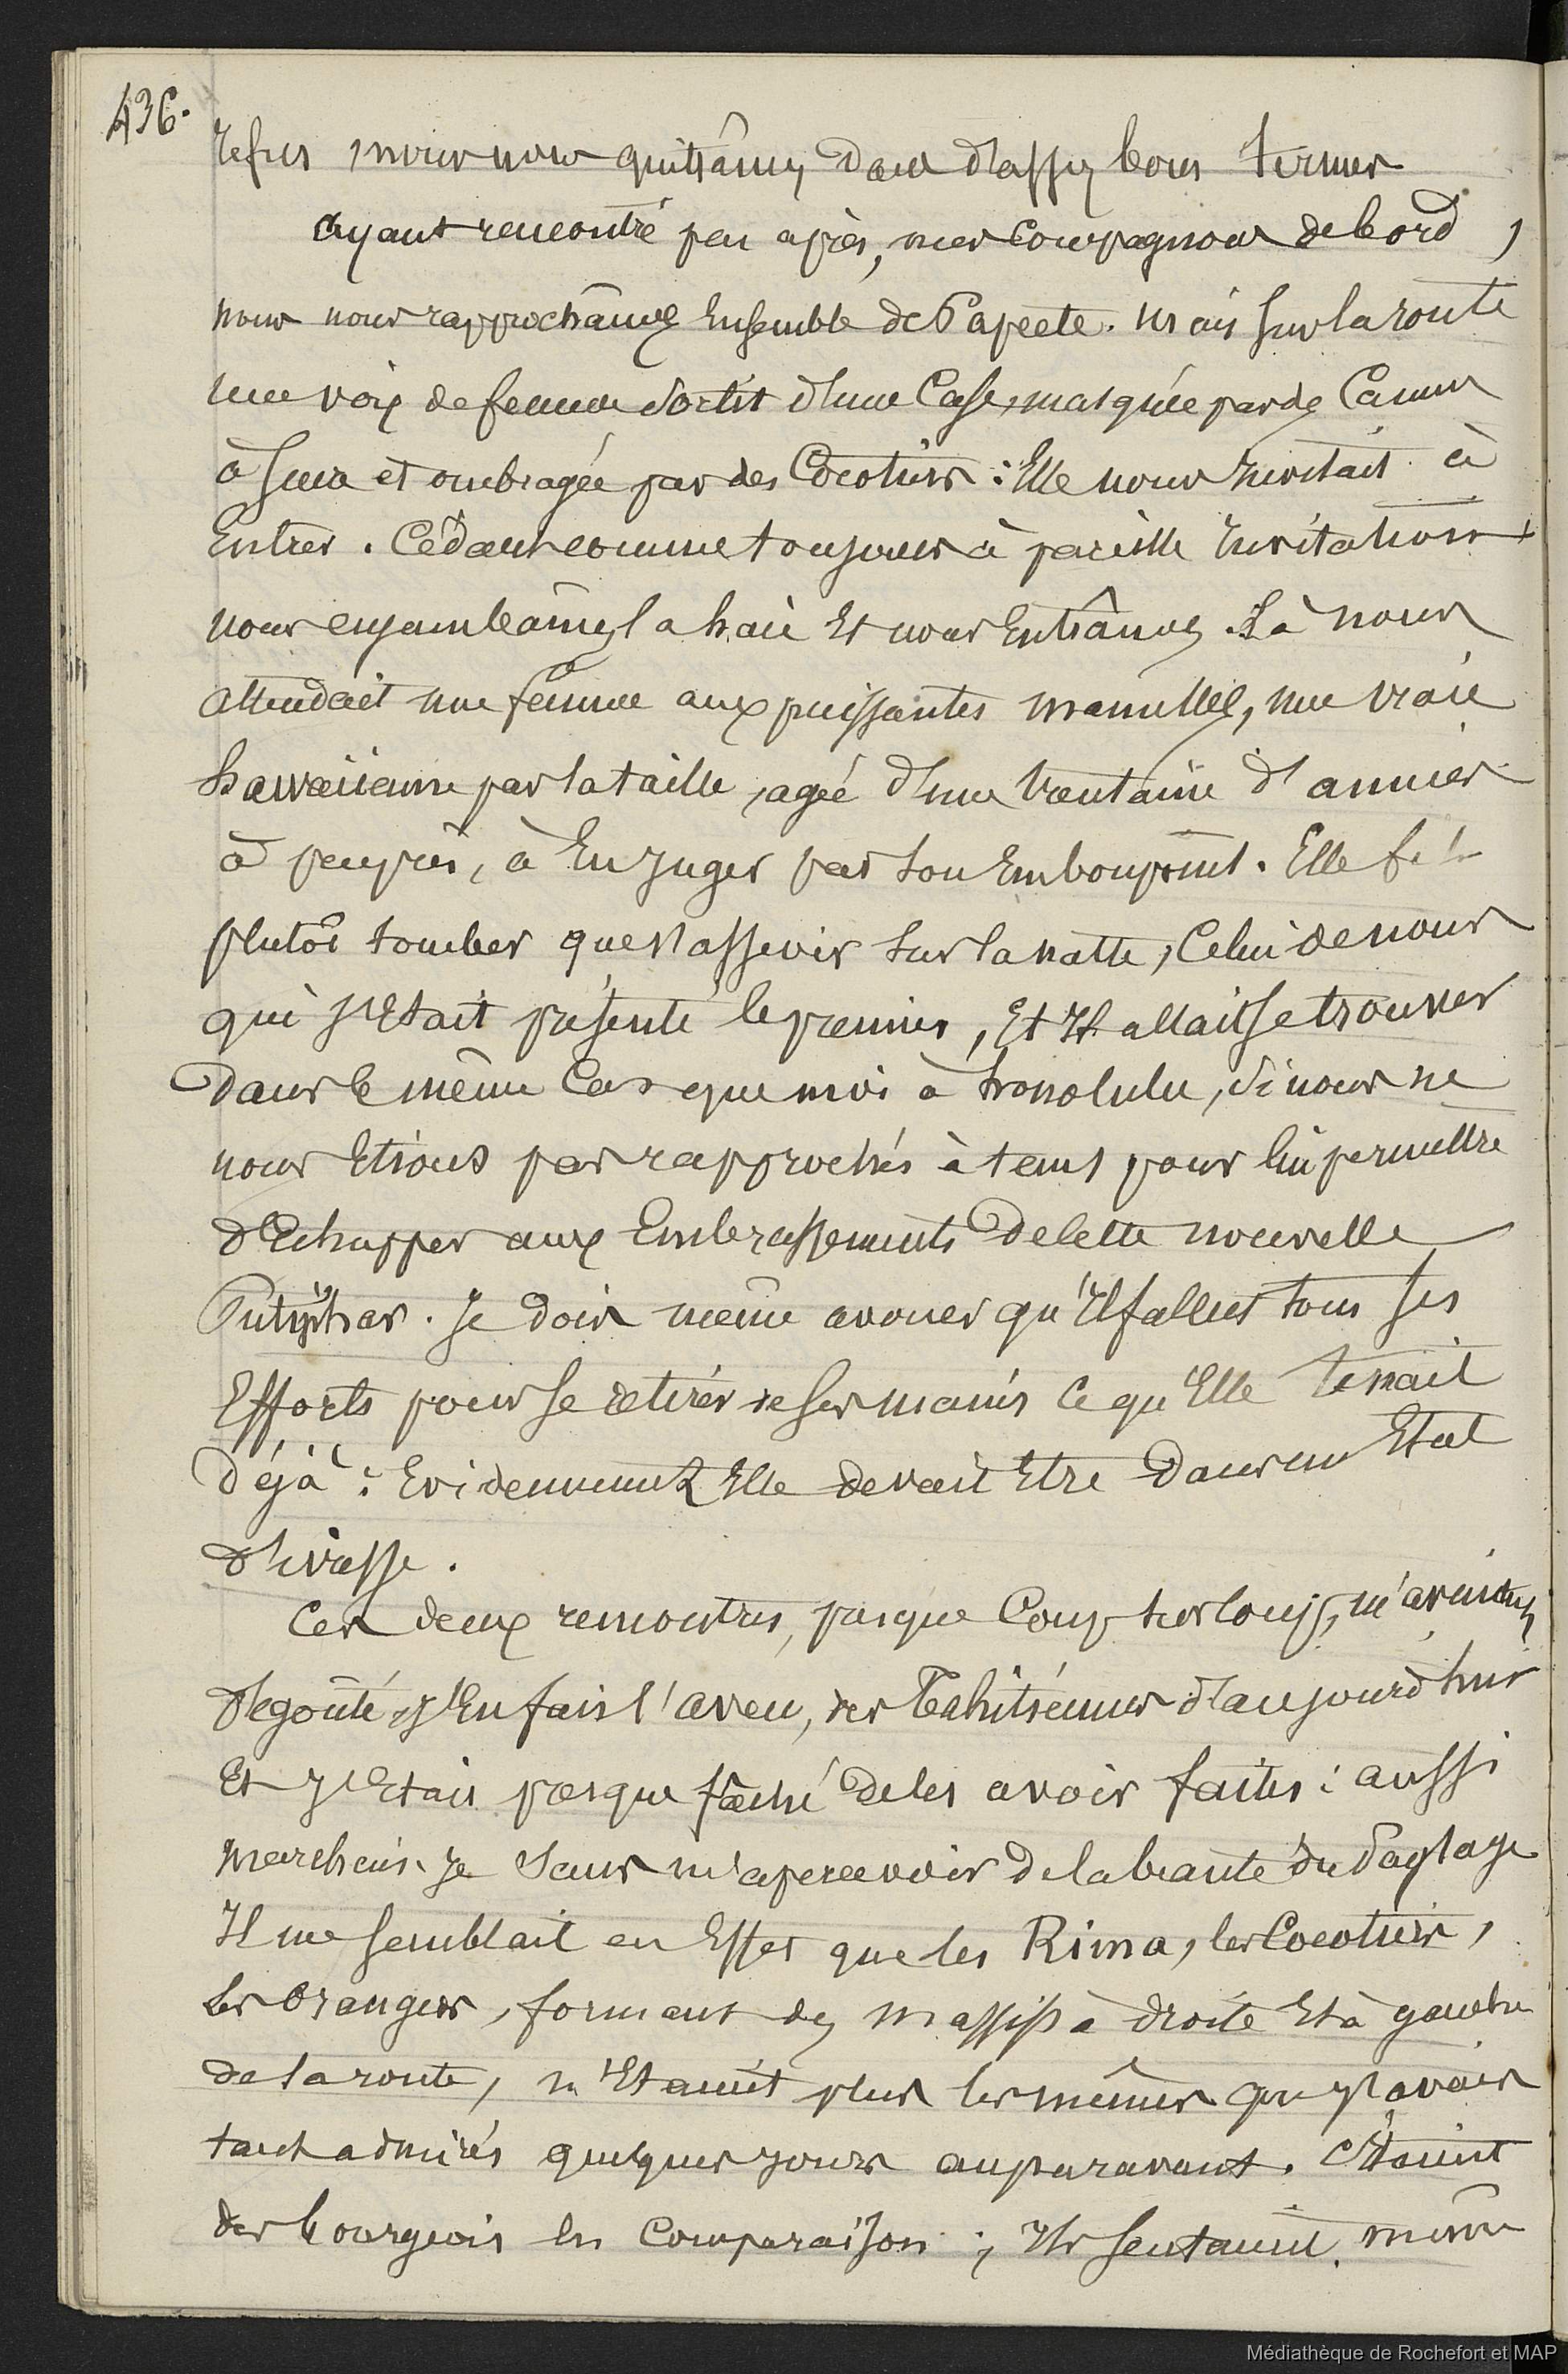 436.
refus, nous nous quittâmes dans d'assez bons termes
ayant rencontré peu après, mes compagnons de bord,
nous nous rapprochâmes Ensemble de Papeete. mais sur la route
une voix de femme sortit d'une Case, masquée par des Cannes
à sucre et ombragée par des Cocotiers : Elle nous Invitait à
Entrer. Cédant comme toujours à pareille Invitation
nous enjambâmes la haie Et nous Entrâmes. Là nous
attendait une femme aux puissantes mamelles, une vraie
hawaiienne par la taille, agée d'une trentaine d'années
à peu près, à En juger par son Embonpoint. Elle fit
plutôt tomber que s'asseoir sur la natte, Celui de nous
qui s'Etait présenté le premier, Et Il allait se trouver
dans le même Cas que moi à honolulu, si nous ne
nous Etions pas rapprochés à tems pour lui permettre
d'Echapper aux Embrassements de cette nouvelle
Putiphar. Je dois même avouer qu'Il fallut tous ses
Efforts pour se retirer de ses mains ce qu'Elle tenait
déjà : Evidemment Elle devait Etre dans un Etat
d'ivresse.
Ces deux rencontres, presque Coup sur Coup, m'avaient
dégoûté, j'En fais l'aveu, des Tahitiennes d'aujourd'hui
Et j'Etais presque fâché de les avoir faites : aussi
marchais-je sans m'apercevoir de la beauté du Paysage
Il me semblait en Effet que les Rima, les Cocotiers,
les Orangers, formant des massifs à droite Et à gauche
de la route, n'Etaient plus les mêmes que j'avais
tant admirés quelques jours auparavant. C'Etaient
des bourgeois En Comparaison ; Ils sentaient même
Médiathèque de Rochefort et MAP